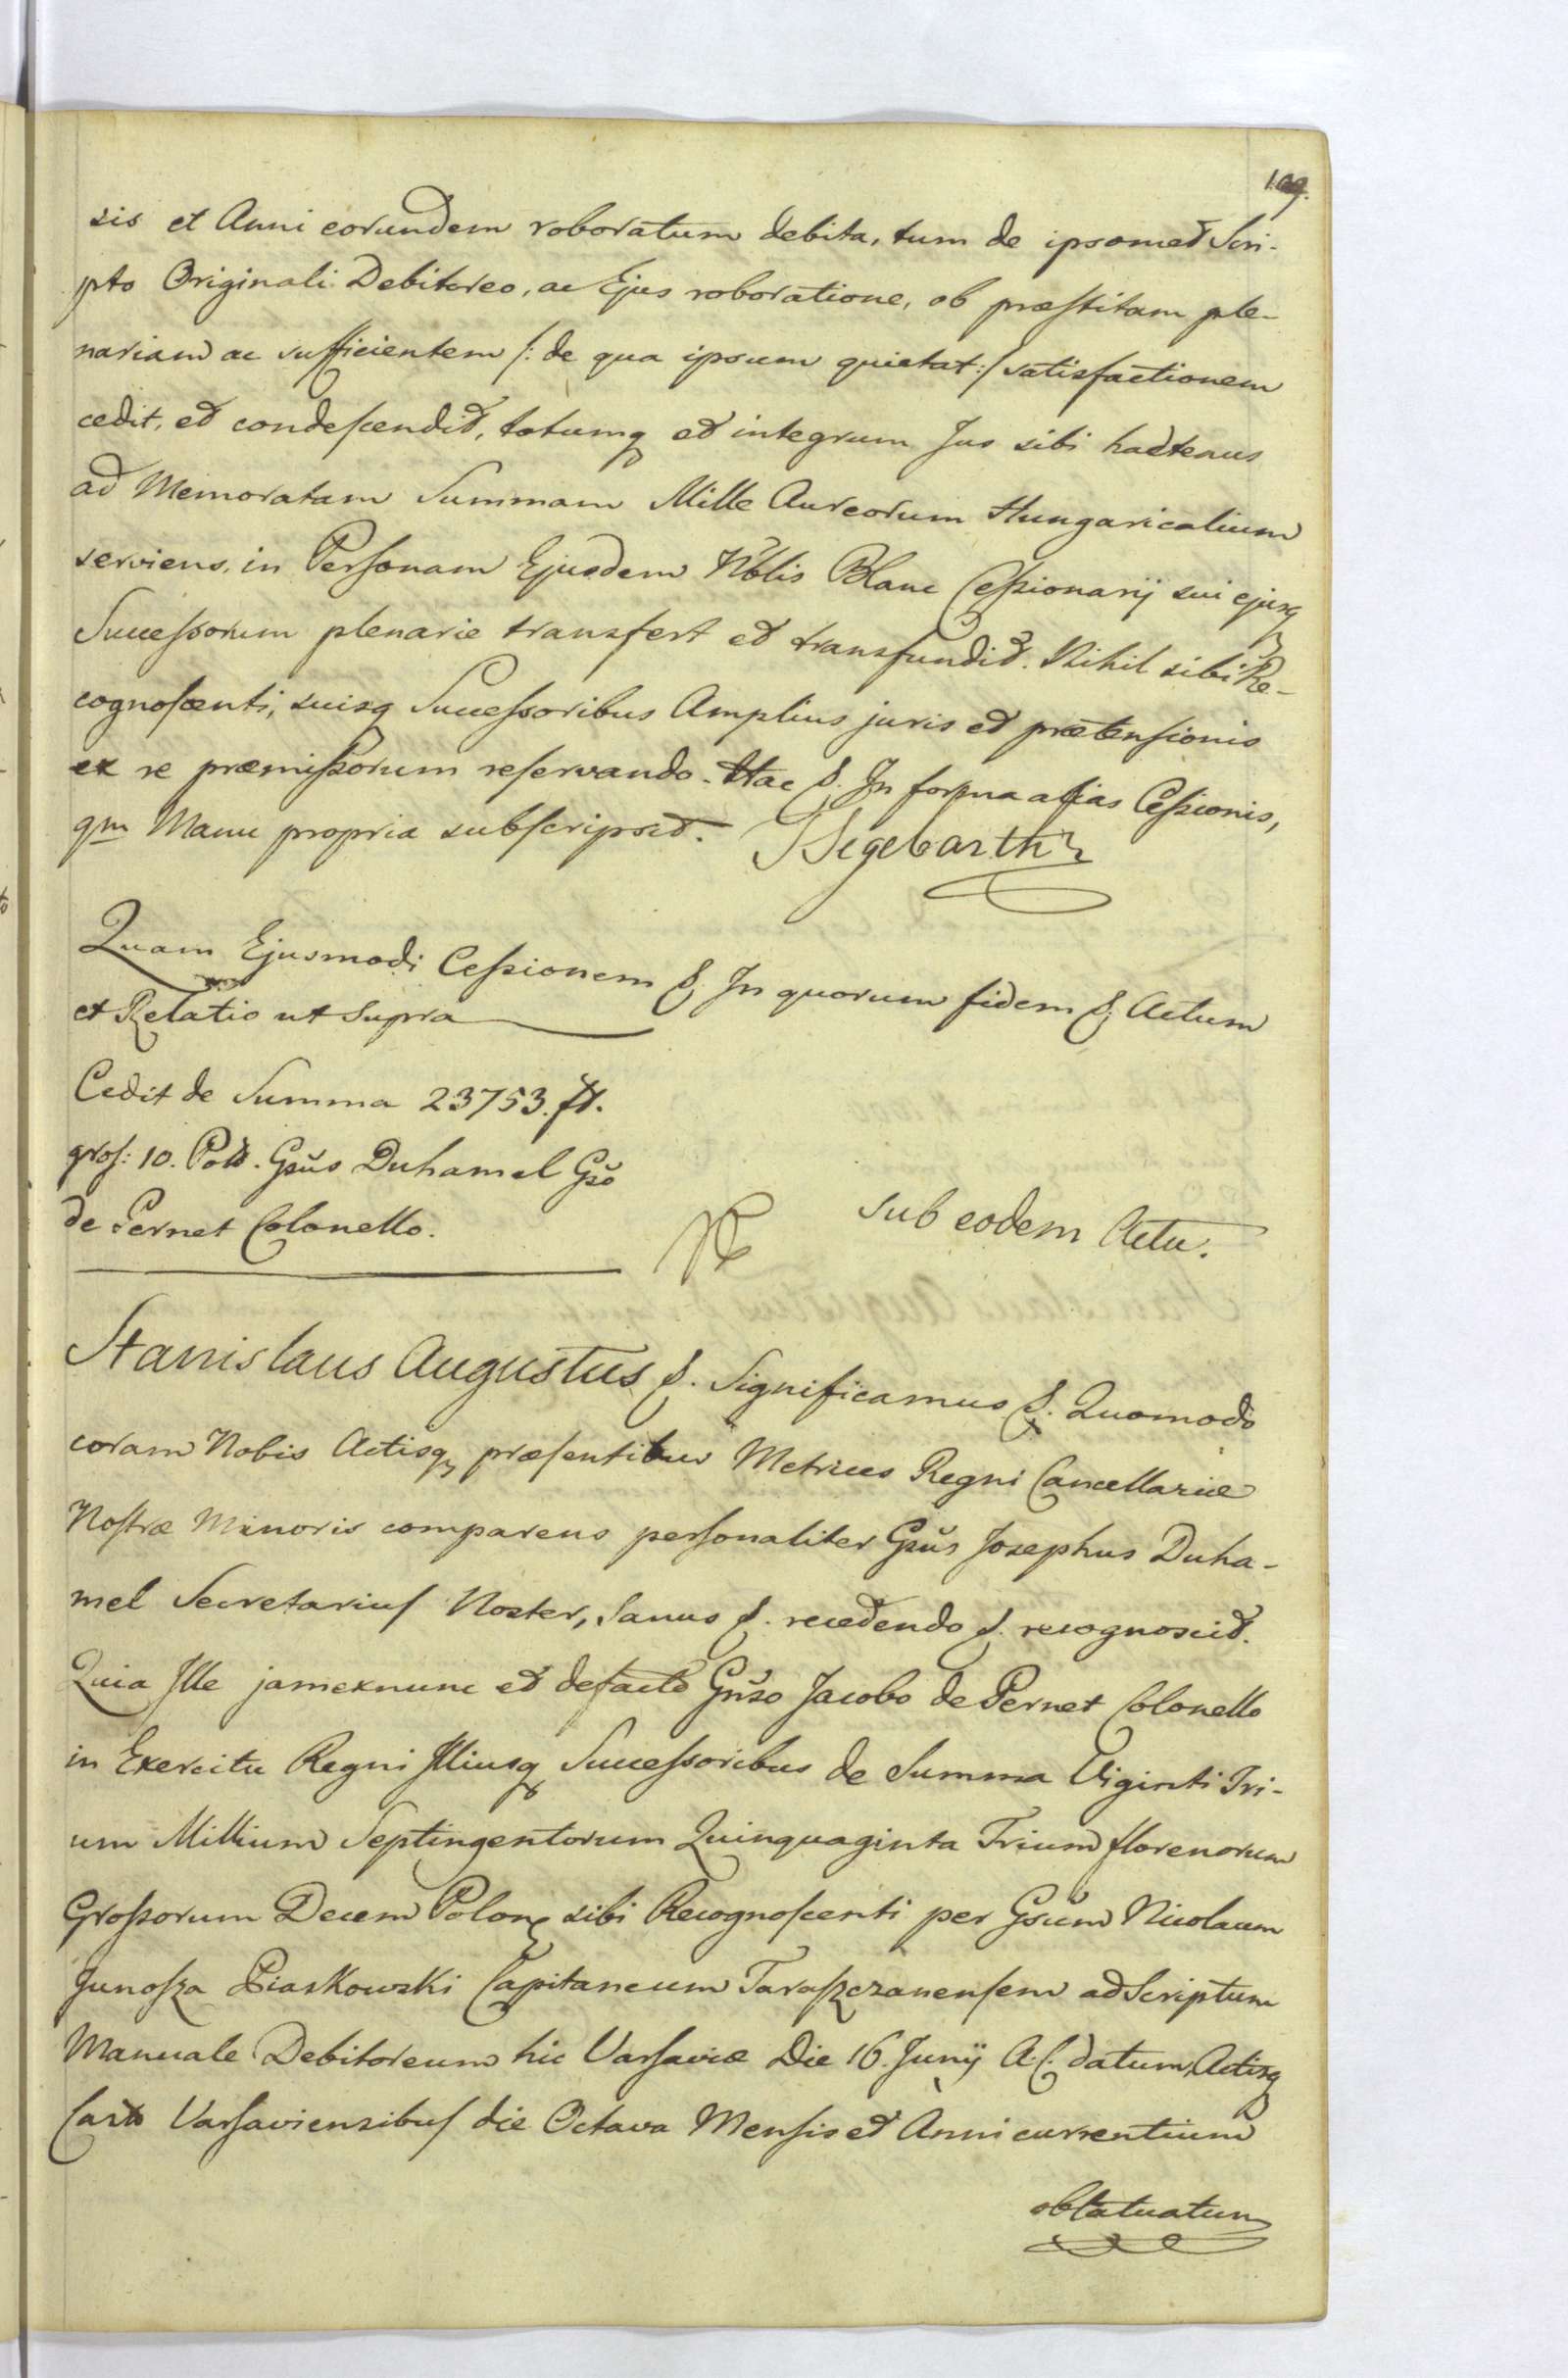 109.
sis et Anni eorundem roboratum debita, tum de ipsomet Scri-
pto Originali Debitoreo, ac Ejus roboratione, ob præstitam ple-
nariam ac sufficientem /: de qua ipsum quietat :/ satisfactionem
cedit, et condescendit, totumq et integrum Jus sibi hactenus
ad Memoratam Summam Mille Aureorum Hungaricalium
serviens, in Personam Ejusdem Nblis Blanc Cessionarij sui ejusq
Successorum plenarie transfert et transfundit. Nihil sibi Re-
cognoscenti, suisq Successoribus Amplius juris et prætensionis
ex re præmissorum reservando. Hac &. In forma alias Cessionis,
qm Manu propria subscripsit. Segebarth
Quam Ejusmodi Cessionem &. In quorum fidem &. Actum
et Relatio ut supra
Cedit de Summa 23753. fl.
gros: 10. Poll. Gsus Duhamel Gso
de Pernet Colonello.
Sub eodem Actu.
Stanislaus Augustus &. Significamus &. Quomodo
coram Nobis Actisq præsentibus Metrices Regni Cancellariæ
Nostræ Minoris comparens personaliter Gsus Josephus Duha-
mel Secretarius Noster, Sanus &. recedendo &. recognoscit.
Quia Ille jamexnunc et defacto Gnso Jacobo de Pernet Colonello
in Exercitu Regni Illiusq Successoribus de Summa Viginti Tri-
um Millium Septingentorum Quinquaginta Trium florenorum
Grossorum Decem Polon sibi Recognoscenti per Gsum Nicolaum
Junosza Piaskowski Capitaneum Taraszczanensem ad Scriptum
Manuale Debitoreum hic Varsaviæ Die 16. Junij A. C. datum, Actisq
Cast Varsaviensibus die Octava Mensis et Anni currentium
oblatuatum